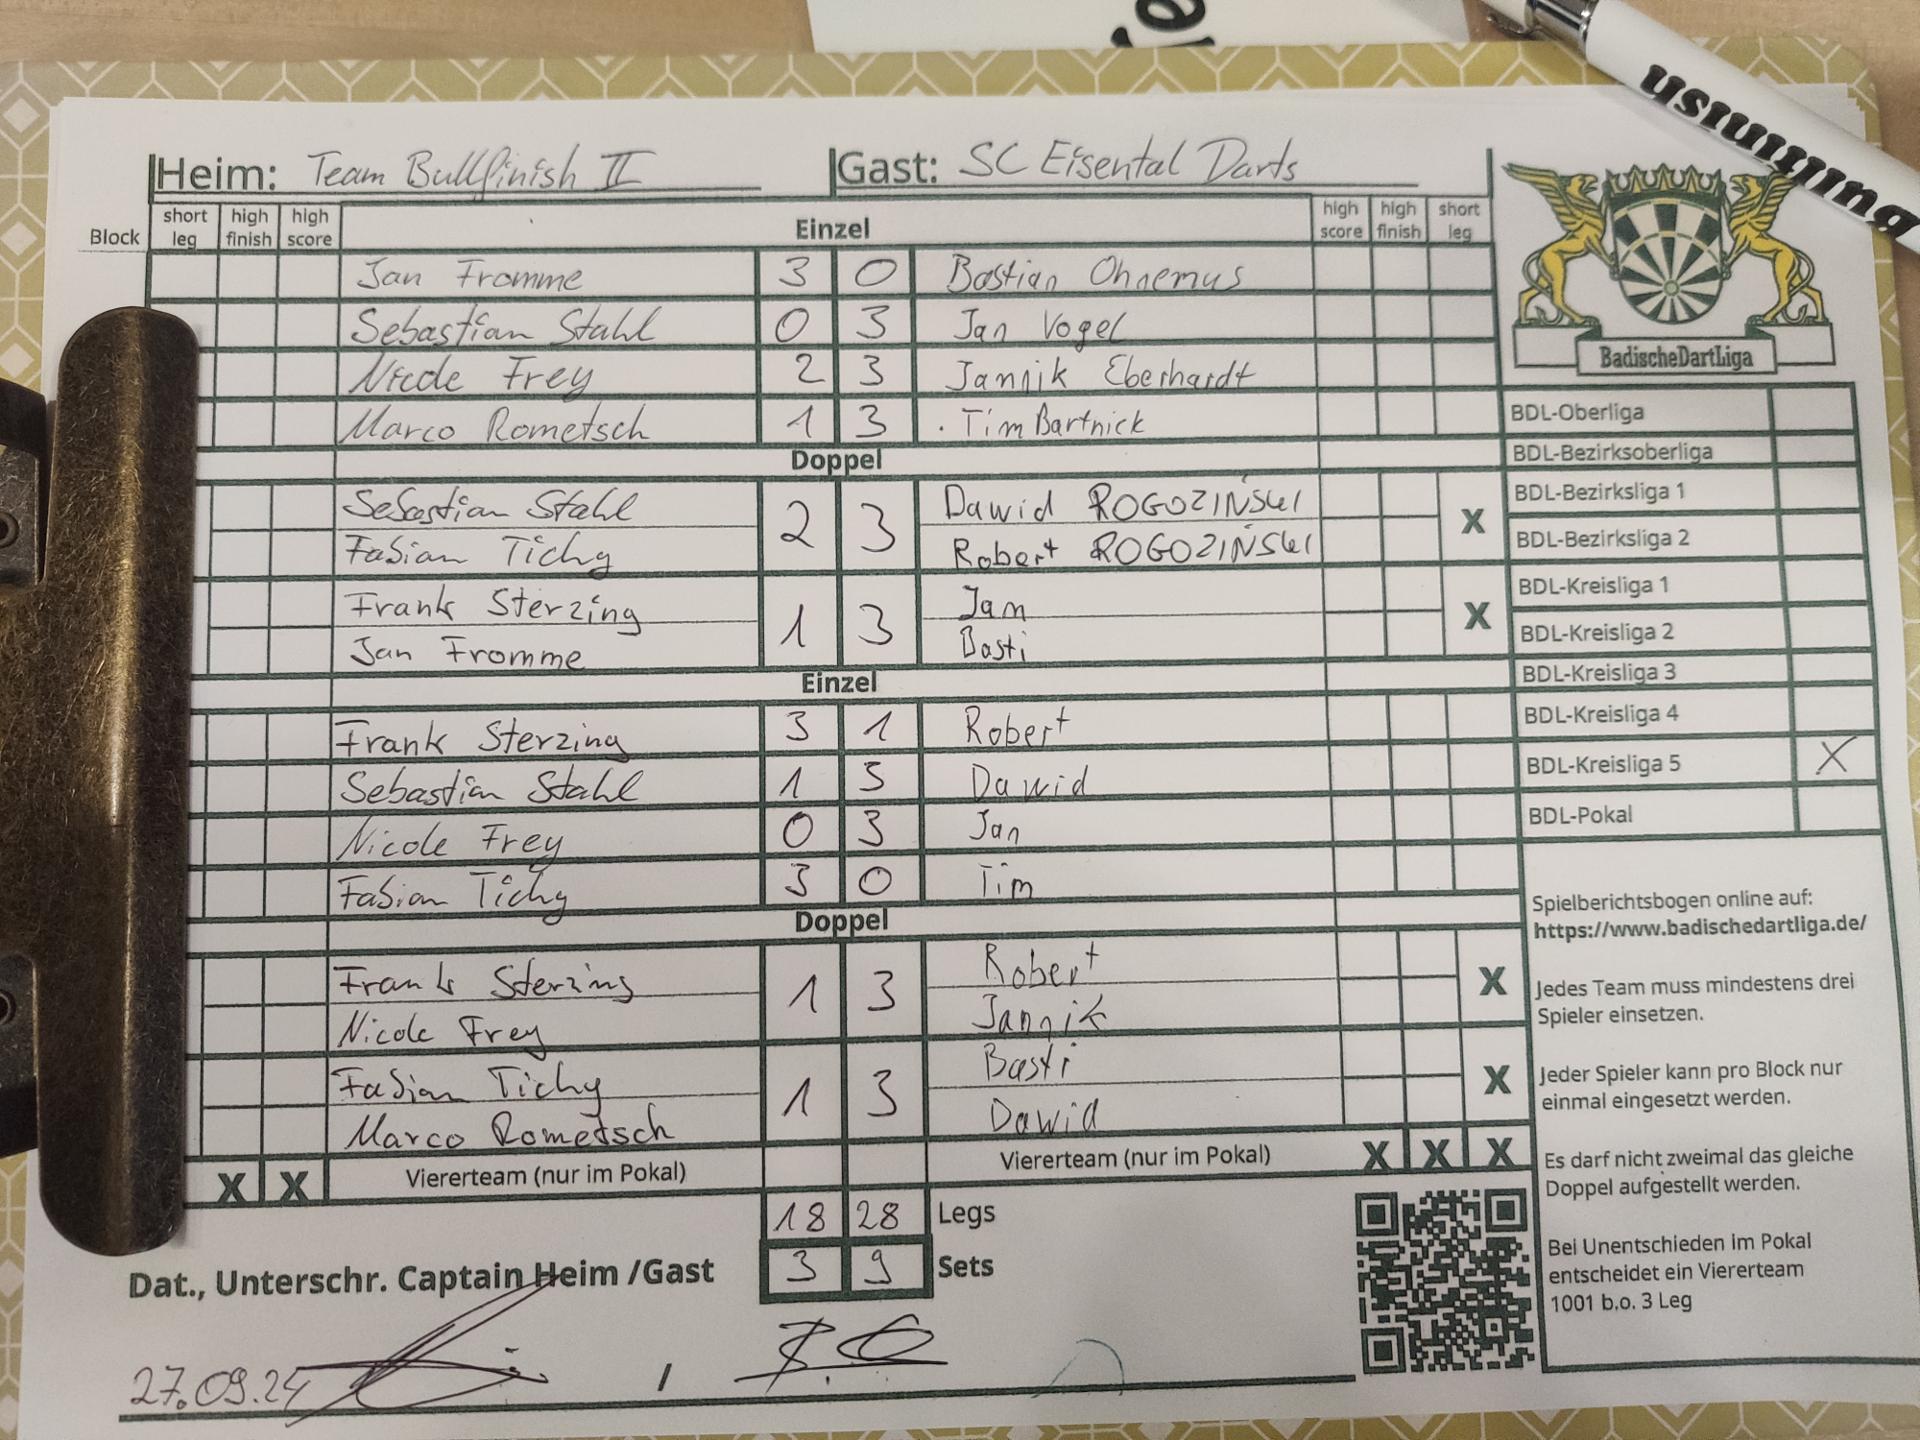 Heim: Team Bullfinish II Gast: SC Eisental Darts
Block short leg high finish high score Einzel high score high finish short leg
Jan Fromme 3 0 Bastian Ohnemus
Sebastian Stahl 0 3 Jan Vogel
Nicole Frey 2 3 Jannik Eberhardt
Marco Rometsch 1 3 Tim Bartnick
Doppel
Sebastian Stahl 2 3 Dawid ROGOZIŃSKI X
Fabian Tichy Robert ROGOZIŃSKI
Frank Sterzing 1 3 Jan X
Jan Fromme Basti
Einzel
Frank Sterzing 3 1 Robert
Sebastian Stahl 1 3 Dawid
Nicole Frey 0 3 Jan
Fabian Tichy 3 0 Tim
Doppel
Frank Sterzing 1 3 Robert X
Nicole Frey Jannik
Fabian Tichy 1 3 Basti X
Marco Rometsch Dawid
X X Viererteam (nur im Pokal) Viererteam (nur im Pokal) X X X
18 28 Legs
3 9 Sets
Dat., Unterschr. Captain Heim /Gast
27.09.24 /
BadischeDartLiga
BDL-Oberliga
BDL-Bezirksoberliga
BDL-Bezirksliga 1
BDL-Bezirksliga 2
BDL-Kreisliga 1
BDL-Kreisliga 2
BDL-Kreisliga 3
BDL-Kreisliga 4
BDL-Kreisliga 5 X
BDL-Pokal
Spielberichtsbogen online auf:
https://www.badischedartliga.de/
Jedes Team muss mindestens drei
Spieler einsetzen.
Jeder Spieler kann pro Block nur
einmal eingesetzt werden.
Es darf nicht zweimal das gleiche
Doppel aufgestellt werden.
Bei Unentschieden im Pokal
entscheidet ein Viererteam
1001 b.o. 3 Leg